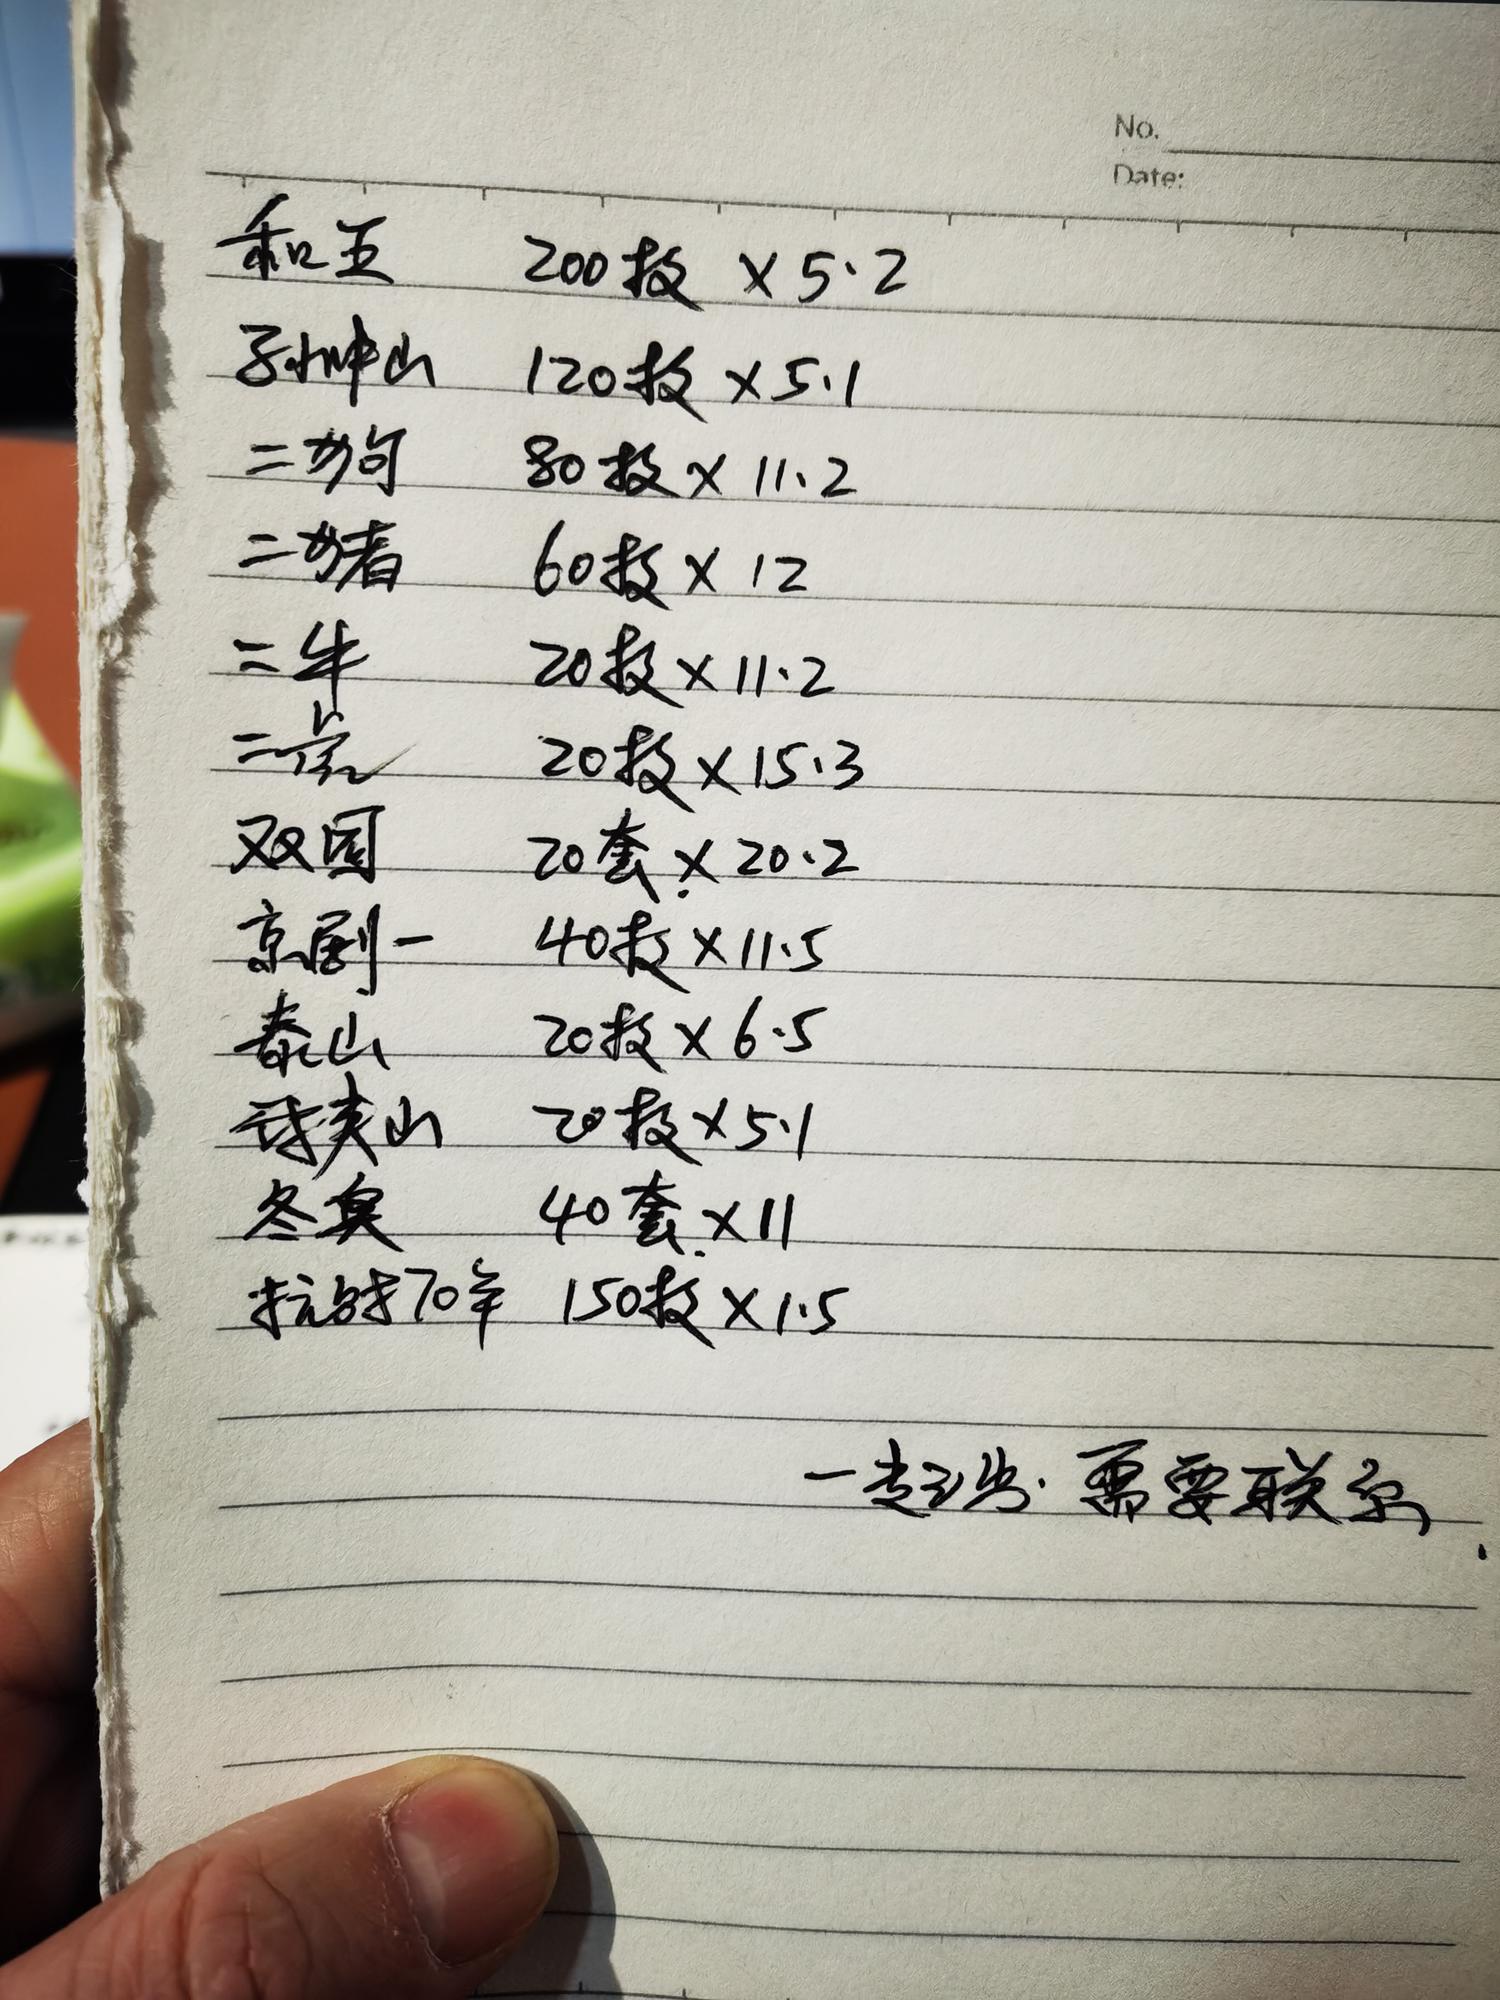 No.
Date:
和五 200枚 ×5.2
孙中山 120枚 ×5.1
二狗 80枚 × 11.2
二猪 60枚 × 12
二牛 20枚 × 11.2
二虎 20枚 × 15.3
双国 20套 × 20.2
京剧一 40枚 × 11.5
泰山 20枚 × 6.5
武夷山 20枚 × 5.1
冬奥 40套 ×11
抗战70年 150枚 × 1.5
一起出.需要联系.